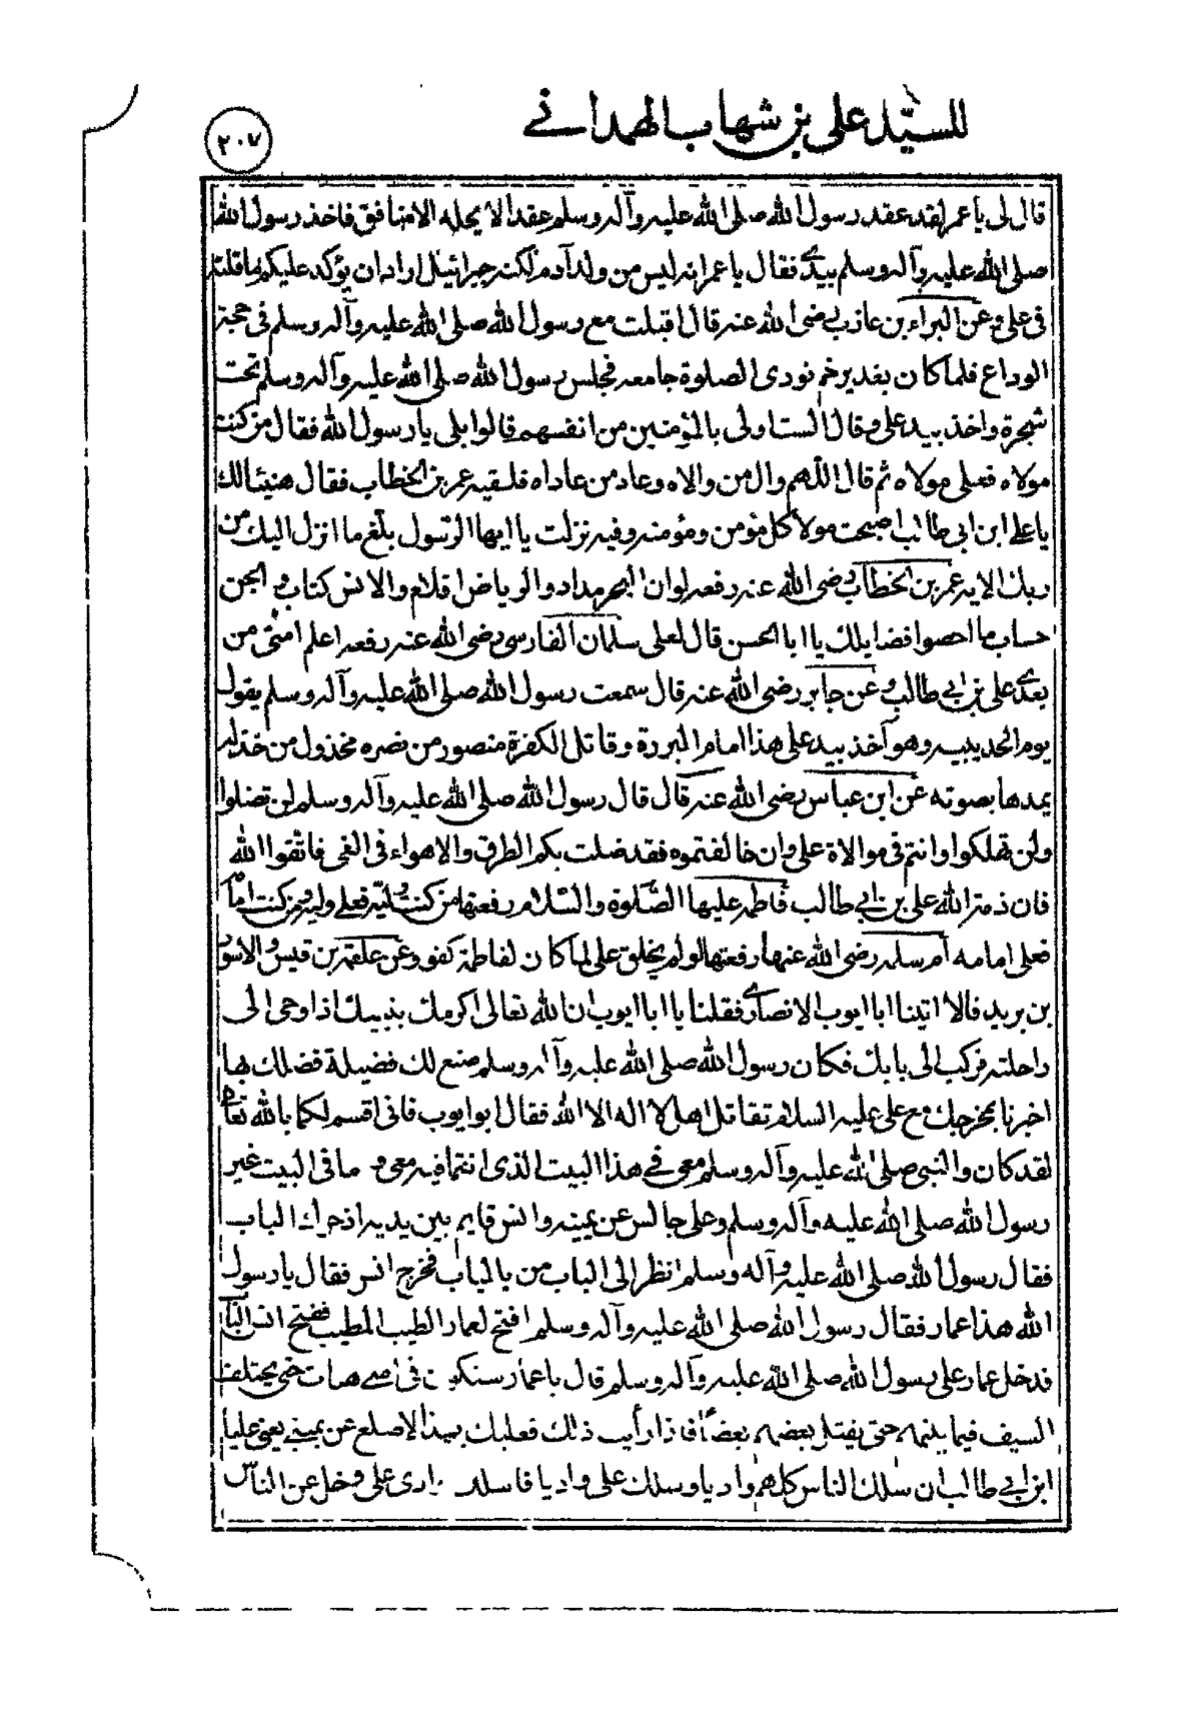 للسيّد علي بن شهاب الهمداني
٢٠٧
قال لي يا عمر لقد عقد رسول الله صلى الله عليه وآله وسلم عقدا لا يحله الا منافق فاخذ رسول الله
صلى الله عليه وآله وسلم بيدي فقال يا عمر انه ليس من ولد آدم لكنه جبرائيل اراد ان يؤكد عليكم ما قلته
في علي وعن البراء بن عازب رضى الله عنه قال اقبلت مع رسول الله صلى الله عليه وآله وسلم في حجة
الوداع فلما كان بغدير خم نودى الصلوة جامعه فجلس رسول الله صلى الله عليه وآله وسلم تحت
شجرة واخذ بيد علي وقال الست اولى بالمؤمنين من انفسهم قالوا بلى يا رسول الله فقال من كنت
مولاه فعلي مولاه ثم قال اللّهم وال من والاه وعاد من عاداه فلقيه عمر بن الخطاب فقال هنيئا لك
يا علي ابن ابي طالب اصبحت مولا كل مؤمن ومؤمنه وفيه نزلت يا ايها الرّسول بلّغ ما انزل اليك من
ربك الايه عمر بن الخطاب رضى الله عنه رفعه لو ان البحر مداد والرياض اقلام والانس كتاب والجن
حساب ما احصوا فضايلك يا ابا الحسن قال لعلي سلمان الفارسى رضى الله عنه رفعه اعلم امتى من
بعدي علي بن ابي طالب وعن جابر رضى الله عنه قال سمعت رسول الله صلى الله عليه وآله وسلم يقول
يوم الحديبيه وهو آخذ بيد علي هذا امام البررة وقاتل الكفرة منصور من نصره مخذول من خذله
يمدها بصوته عن ابن عباس رضى الله عنه قال قال رسول الله صلى الله عليه وآله وسلم لن تضلوا
ولن تهلكوا وانتم في موالاة علي وان خالفتموه فقد ضلت بكم الطرق والاهواء في الغى فاتقوا الله
فان ذمة الله علي بن ابي طالب فاطمه عليها الصّلوة والسّلام رفعتها من كنت وليّه فعلي وليه ومن كنت امامه
فعلي امامه ام سلمه رضى الله عنها رفعتها لو لم يخلق علي لما كان لفاطمة كفو وعن علقمة بن قيس والاسود
بن بريد قالا اتينا ابا ايوب الانصاري فقلنا يا ابا ايوب ان الله تعالى اكرمك بنبيك اذ اوحى الى
راحلته فركب الى بابك فكان رسول الله صلى الله عليه وآله وسلم صنع لك فضيلة فضلك بها
اخبرنا بمخرجك مع علي عليه السلام تقاتل اهل لا اله الا الله فقال ابو ايوب فانى اقسم لكما بالله تعالى
لقد كان والنبي صلى الله عليه وآله وسلم معي في هذا البيت الذى انتما فيه معى وما في البيت غير
رسول الله صلى الله عليه وآله وسلم وعلي جالس عن يمينه وانس قايم بين يديه اذ حرك الباب
فقال رسول الله صلى الله عليه وآله وسلم انظر الى الباب من بالباب فخرج انس فقال يا رسول
الله هذا عمار فقال رسول الله صلى الله عليه وآله وسلم افتح لعمار الطيب المطيب ففتح انس الباب
فدخل عمار علي رسول الله صلى الله عليه وآله وسلم قال يا عمار ستكون في هنات حتى يختلف
السيف فيما بينهم حتى يقتل بعضهم بعضاً فاذا رأيت ذلك فعليك بهذا الاصلع عن يمينى يعنى عليا
ابن ابي طالب ان سلك الناس كلهم واديا وسلك علي واديا فاسلك وادى علي وخل عن الناس